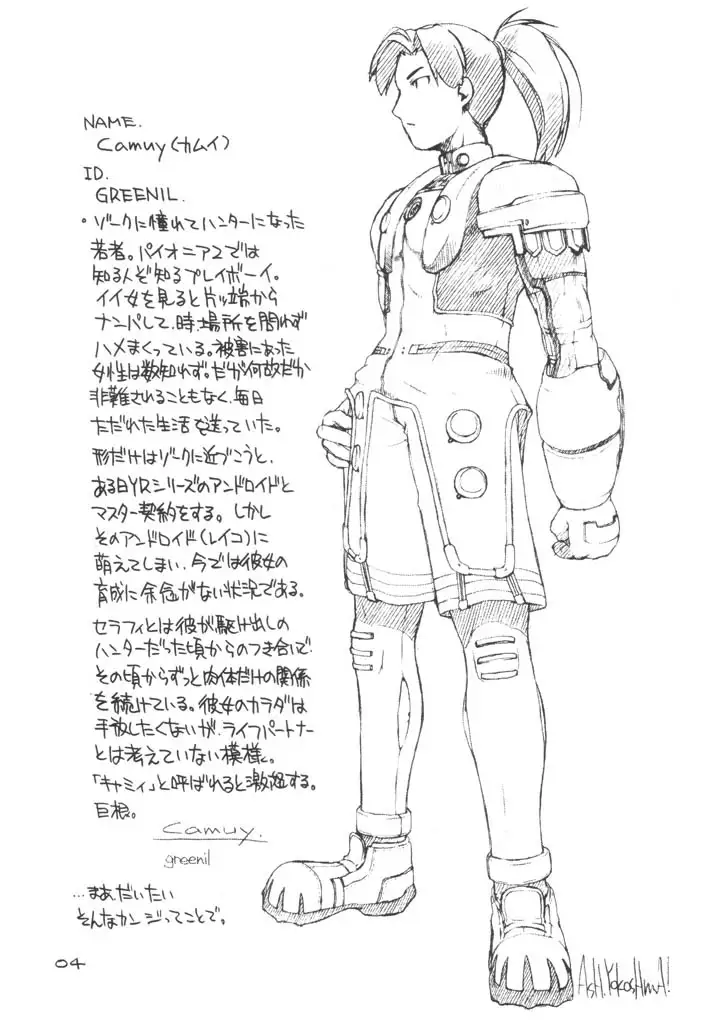 NAME.
Camuy(カムイ)
ID.
GREENIL.
。ゾークに憧れてハンターになった
若者。パイオニア2では
知る人ぞ知るプレイボーイ。
イイ女を見ると片ッ端から
ナンパして、時、場所を問わず
ハメまくっている。被害にあった
女性は数知れず。だが何故だか
非難されることもなく、毎日
ただれた生活を送っていた。
形だけはゾークに近づこうと、
ある日YRシリーズのアンドロイドと
マスター契約をする。しかし
そのアンドロイド(レイコ)に
萌えてしまい、今では彼女の
育成に余念がない状況である。
セラフィとは彼が駆け出しの
ハンターだった頃からのつき合いで、
その頃からずっと肉体だけの関係
を続けている。彼女のカラダは
手放したくないが、ライフパートナー
とは考えていない模様。
「キャミィ」と呼ばれると激怒する。
巨根。
Camuy.
greenil
…まぁ、だいたい
そんなカンジってことで。
04
AsH.YokosHimA!